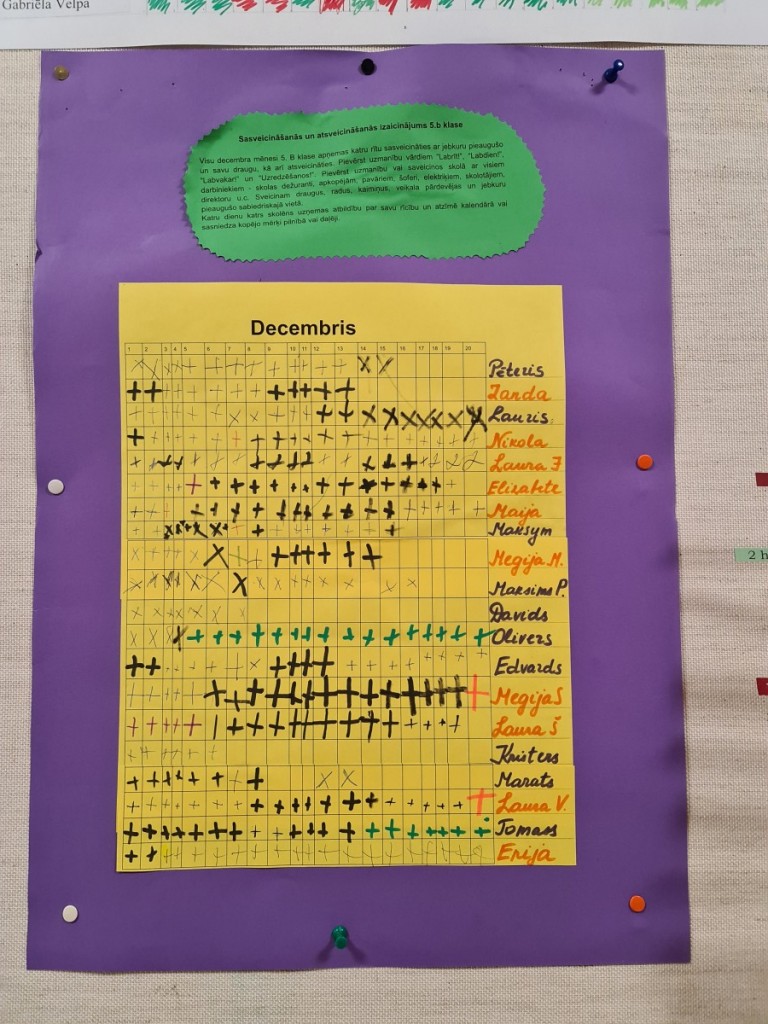 Gabriēla Velpa
Sasveicināšanās un atsveicināšanās izaicinājums 5.b klase
Visu decembra mēnesi 5. B klase apņemas katru rītu sasveicināties ar jebkuru pieaugušo
un savu draugu, kā arī atsveicināties. Pievērst uzmanību vārdiem "Labrīt!", "Labdien!",
"Labvakar!" un "Uzredzēšanos!". Pievērst uzmanību vai sveicinos skolā ar visiem
darbiniekiem - skolas dežuranti, apkopējām, pavāriem, šoferi, elektriķiem, skolotājiem,
direktoru u.c. Sveicinam draugus, radus, kaimiņus, veikala pārdevējas un jebkuru
pieaugušo sabiedriskajā vietā.
Katru dienu katrs skolēns uzņemas atbildību par savu rīcību un atzīmē kalendārā vai
sasniedza kopējo mērķi pilnībā vai daļēji.
Decembris
1 2 3 4 5 6 7 8 9 10 11 12 13 14 15 16 17 18 19 20
Pēteris
Janda
Lauris
Nikola
Laura J
Elizabete
Maija
Maksym
Megija M.
Maksims P.
Davids
Olivers
Edvards
Megija S
Laura Š
Kristers
Marats
Laura V.
Tomass
Erija
2 h